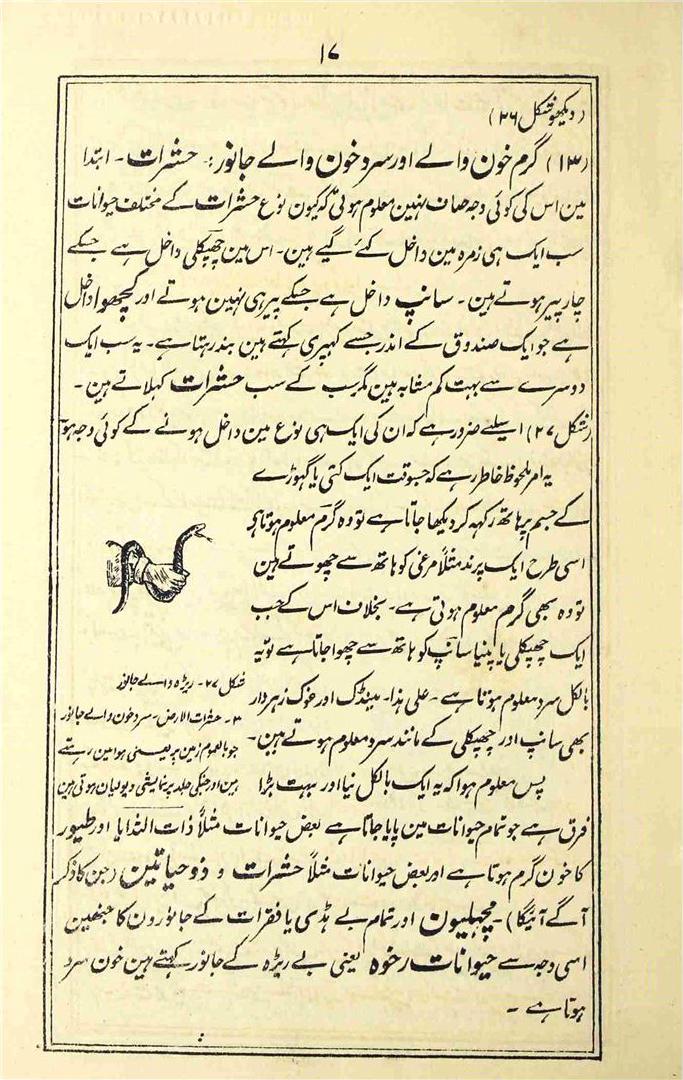 ۱۷
(دیکھو شکل ۲۶)
(۱۳) گرم خون والے اور سرد خون والے جانور :۔ حشرات ۔ ابتدا
مین اس کی کوئی وجہ صاف نہین معلوم ہوتی کہ کیون نوع حشرات کے مختلف حیوانات
سب ایک ہی زمرہ مین داخل کئے گیے ہین۔ اس مین چھپکلی داخل ہے جسکے
چار پیر ہوتے ہین۔ سانپ داخل ہے جسکے پیر ہی نہین ہوتے اور کچھوا داخل
ہے جو ایک صندوق کے اندر جسے کہپری کہتے ہین بند رہتا ہے۔ یہ سب ایک
دوسرے سے بہت کم مشابہ ہین مگر سب کے سب حشرات کہلاتے ہین۔
(شکل ۲۷) اسیلئے ضرور ہے کہ ان کی ایک ہی نوع مین داخل ہونے کے کوئی وجہ ہو
یہ امر ملحوظ خاطر رہے کہ جسوقت ایک کتی یا گہوڑے
کے جسم پر ہاتھ رکہہ کر دیکھا جاتا ہے تو وہ گرم معلوم ہوتا ہے
اسی طرح ایک پرند مثلاً مرغی کو ہاتھ سے چھوتے ہین
تو وہ بھی گرم معلوم ہوتی ہے۔ بخلاف اس کے جب
ایک چھپکلی یا پنیا سانپ کو ہاتھ سے چھوا جاتا ہے تو یہ
بالکل سرد معلوم ہوتا ہے۔ علی ہذا۔ مینڈک اور غوک زہردار
بھی سانپ اور چھپکلی کے مانند سرد معلوم ہوتے ہین۔
شکل ۲۷۔ ریڑہ والے جانور
۳۔ حشرات الارض۔ سرد خون والے جانور
جو بالعموم زمین پر یعنی ہوا مین رہتے
ہین اور جنکی جلد پر نمایشی دیولیان ہوتی ہین
پس معلوم ہوا کہ یہ ایک بالکل نیا اور بہت بڑا
فرق ہے جو تمام حیوانات مین پایا جاتا ہے بعض حیوانات مثلاً ذات الثدایا اور طیور
کا خون گرم ہوتا ہے اور بعض حیوانات مثلاً حشرات و ذو حیاتین (جن کا ذکر
آگے آئیگا)۔ مچھلیون اور تمام بے ہڈی یا فقرات کے جانورون کا جنھین
اسی وجہ سے حیوانات رخوہ یعنی بے ریڑہ کے جانور کہتے ہین خون سرد
ہوتا ہے ۔